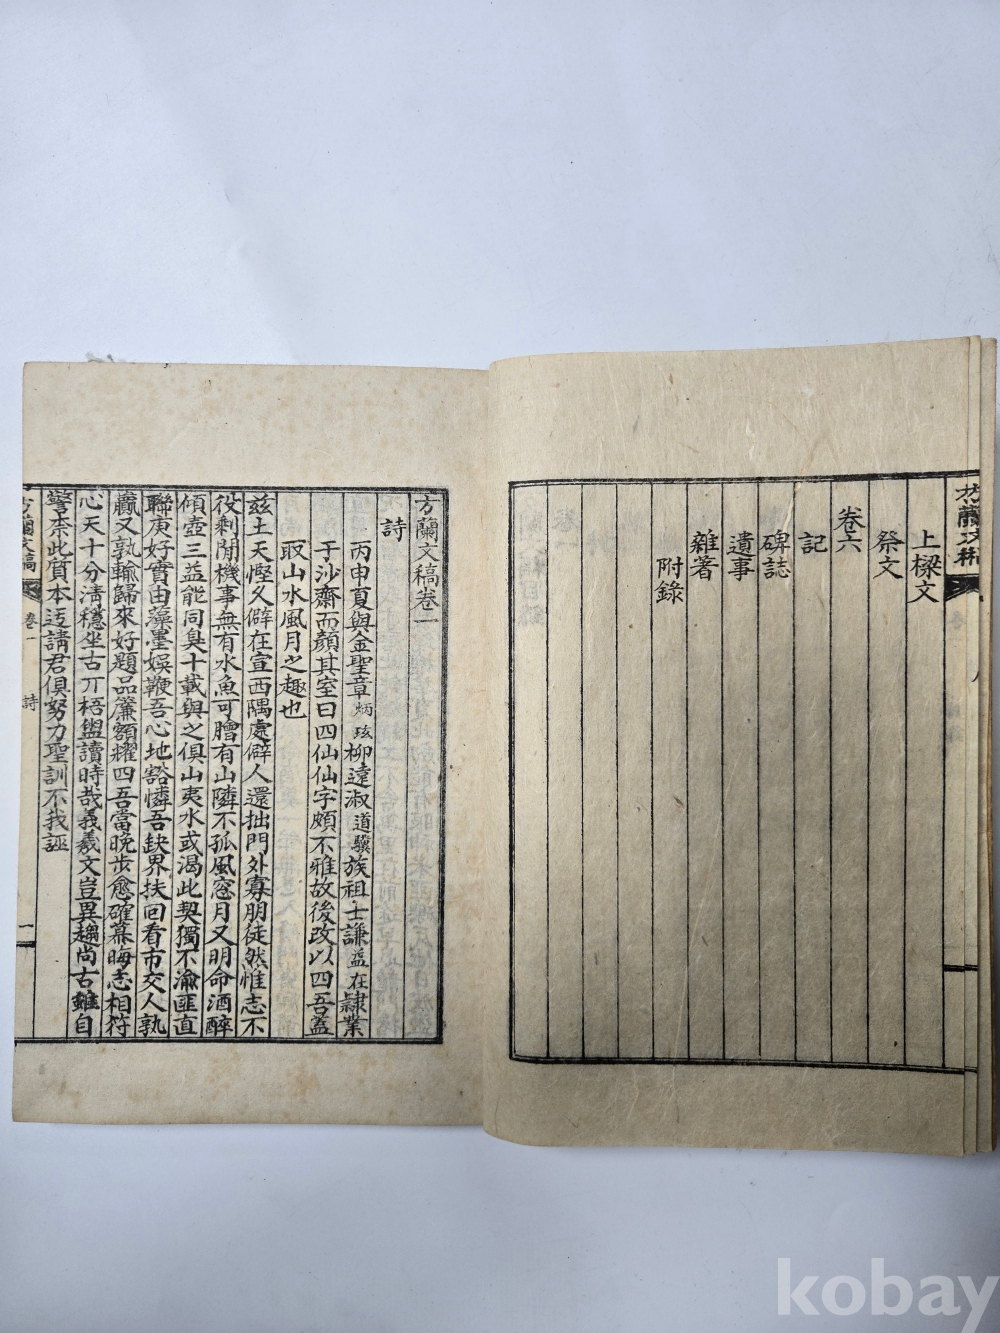 上樑文
祭文
卷六
記
碑誌
遺事
雜著
附錄
方蘭文稿卷一
詩
丙申夏與金聖章炳玹柳遠淑道驥族祖士謙益在隷業
于沙齋而顔其室曰四仙仙字頗不雅故後改以四吾蓋
取山水風月之趣也
玆土天慳久僻在宣西隅處僻人還拙門外寡朋徒然惟志不
役剩閒機事無有水魚可膾有山隣不孤風窓月又明命酒醉
傾壺三益能同臭十載與之俱山夷水或渴此契獨不渝匪直
聯庚好實由藻墨娛鞭吾心地豁憐吾缺界扶回看市交人孰
贏又孰輸歸來好題品簾額耀四吾當晩步愈確幕晦志相符
心天十分淸穩坐古丌梧盥讀時哉義羲文豈異趨尙古雖自
警柰此質本迃請君俱努力聖訓不我誣
方蘭文稿
卷一
詩
一
kobay